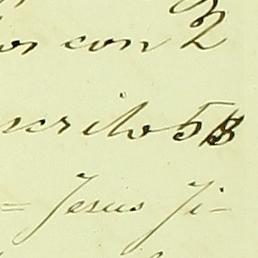 os con 2
scrito 58
= Jesus Ji-